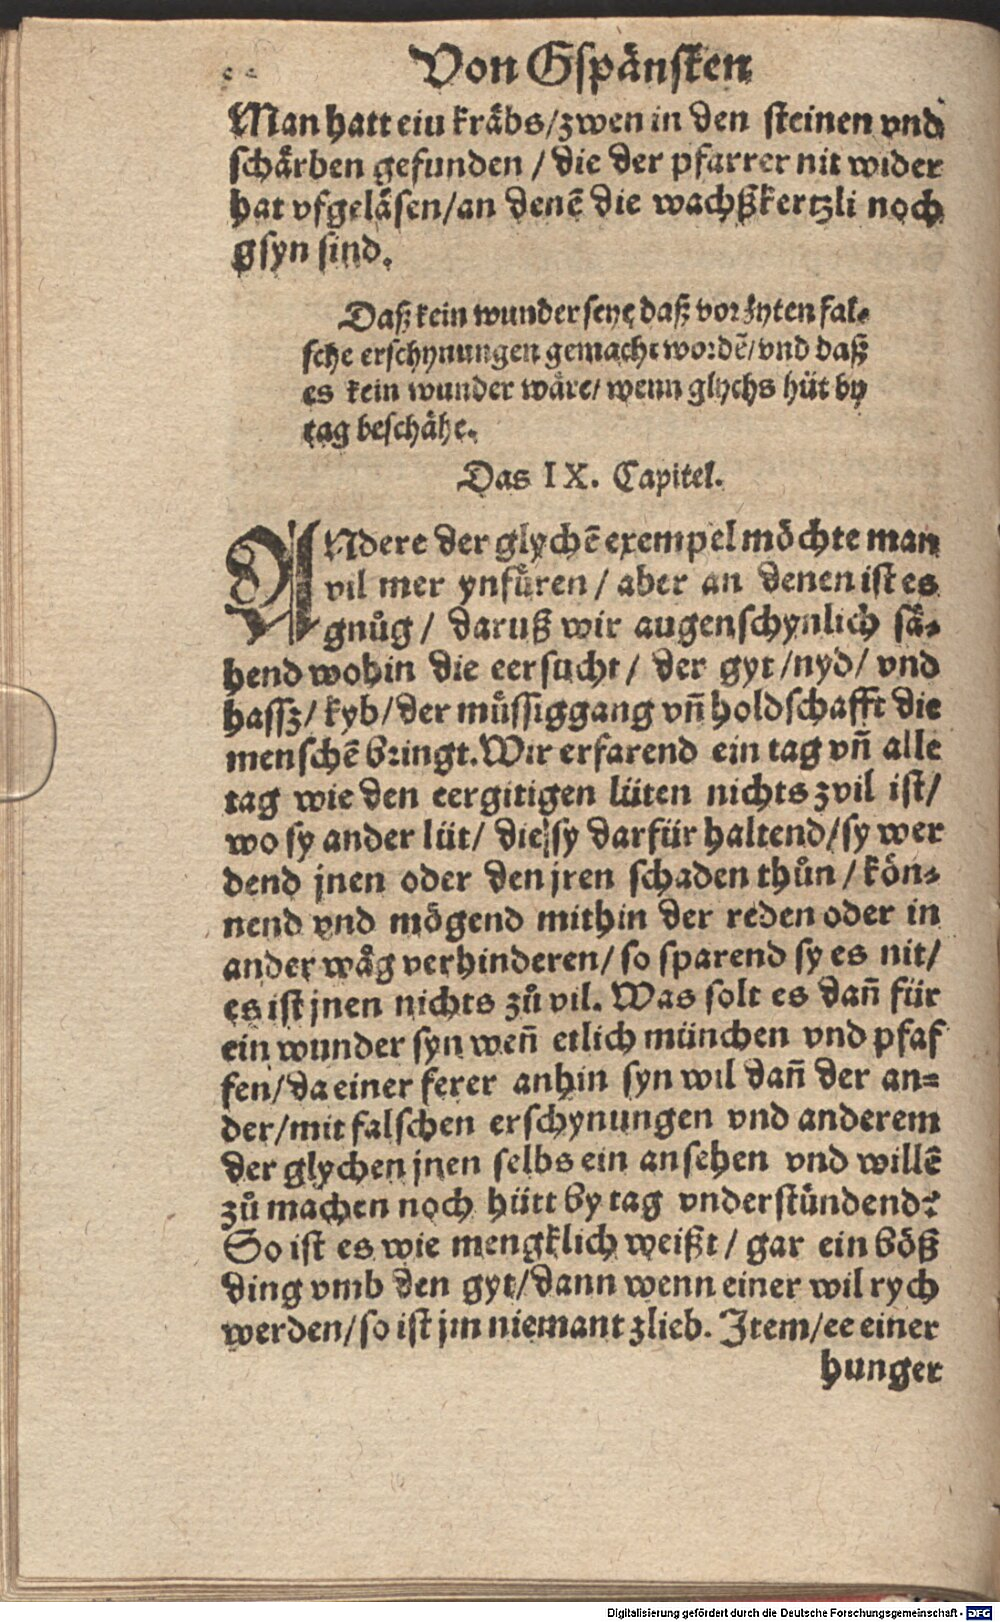 Von Gspånsten
Man hatt ein kråbs/zwen in den steinen vnd
schårben gefunden / die der pfarrer nit wider
hat vfgelåsen/an denē die wachßkertzli noch
gsyn sind.
Daß kein wunder seye daß vor zyten fal-
sche erschynungen gemacht wordē/vnd daß
es kein wunder wåre/ wenn glychs hüt by
tag beschåhe.
Das IX. Capitel.
ANdere der glychē exempel möchte man
vil mer ynfůren / aber an denen ist es
gnůg / daruß wir augenschynlich så-
hend wohin die eersucht / der gyt /nyd/ vnd
hassz/ kyb/der můssiggang vn̄ holdschafft die
menschē bringt. Wir erfarend ein tag vn̄ alle
tag wie den eergitigen lüten nichts zvil ist/
wo sy ander lüt/ die sy darfür haltend/sy wer
dend jnen oder den jren schaden thůn / kön-
nend vnd mögend mithin der reden oder in
ander wåg verhinderen/ so sparend sy es nit/
es ist jnen nichts zů vil. Was solt es dan̄ für
ein wunder syn wen̄ etlich münchen vnd pfaf
fen/da einer ferer anhin syn wil dan̄ der an-
der/mit falschen erschynungen vnd anderem
der glychen jnen selbs ein ansehen vnd willē
zů machen noch hütt by tag vnderstündend?
So ist es wie mengklich weißt / gar ein böß
ding vmb den gyt/dann wenn einer wil rych
werden/so ist jm niemant zlieb. Item/ee einer
hunger
Digitalisierung gefördert durch die Deutsche Forschungsgemeinschaft - DFG